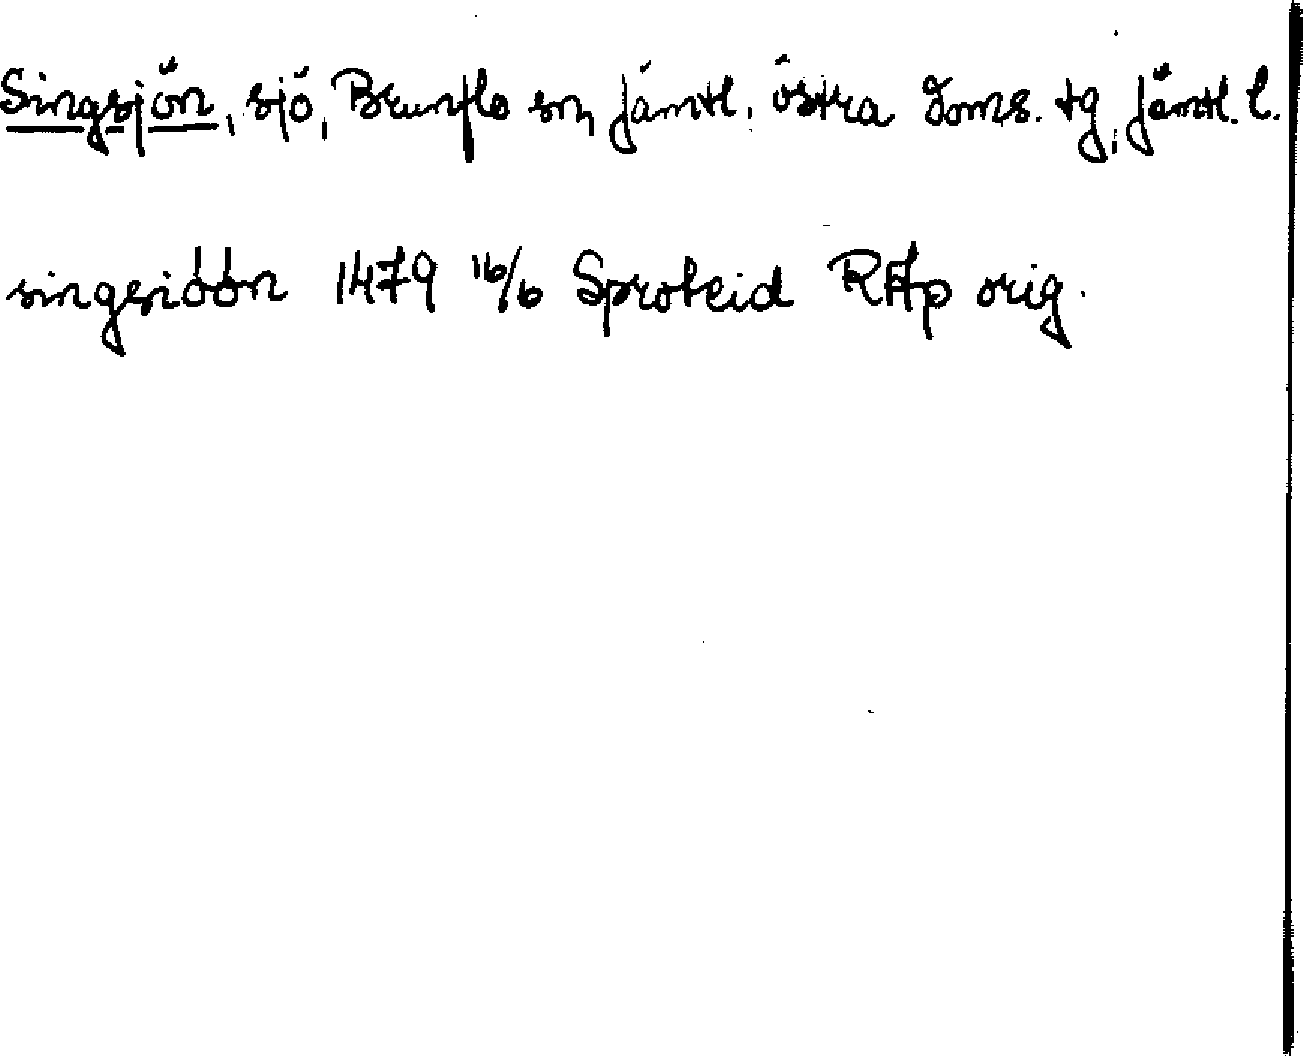 Singsjön, sjö, Brunflo sn, Jämtl. östra doms. tg, Jämtl. l.
singesióón 1479 16/6 Sproteid RAp orig.